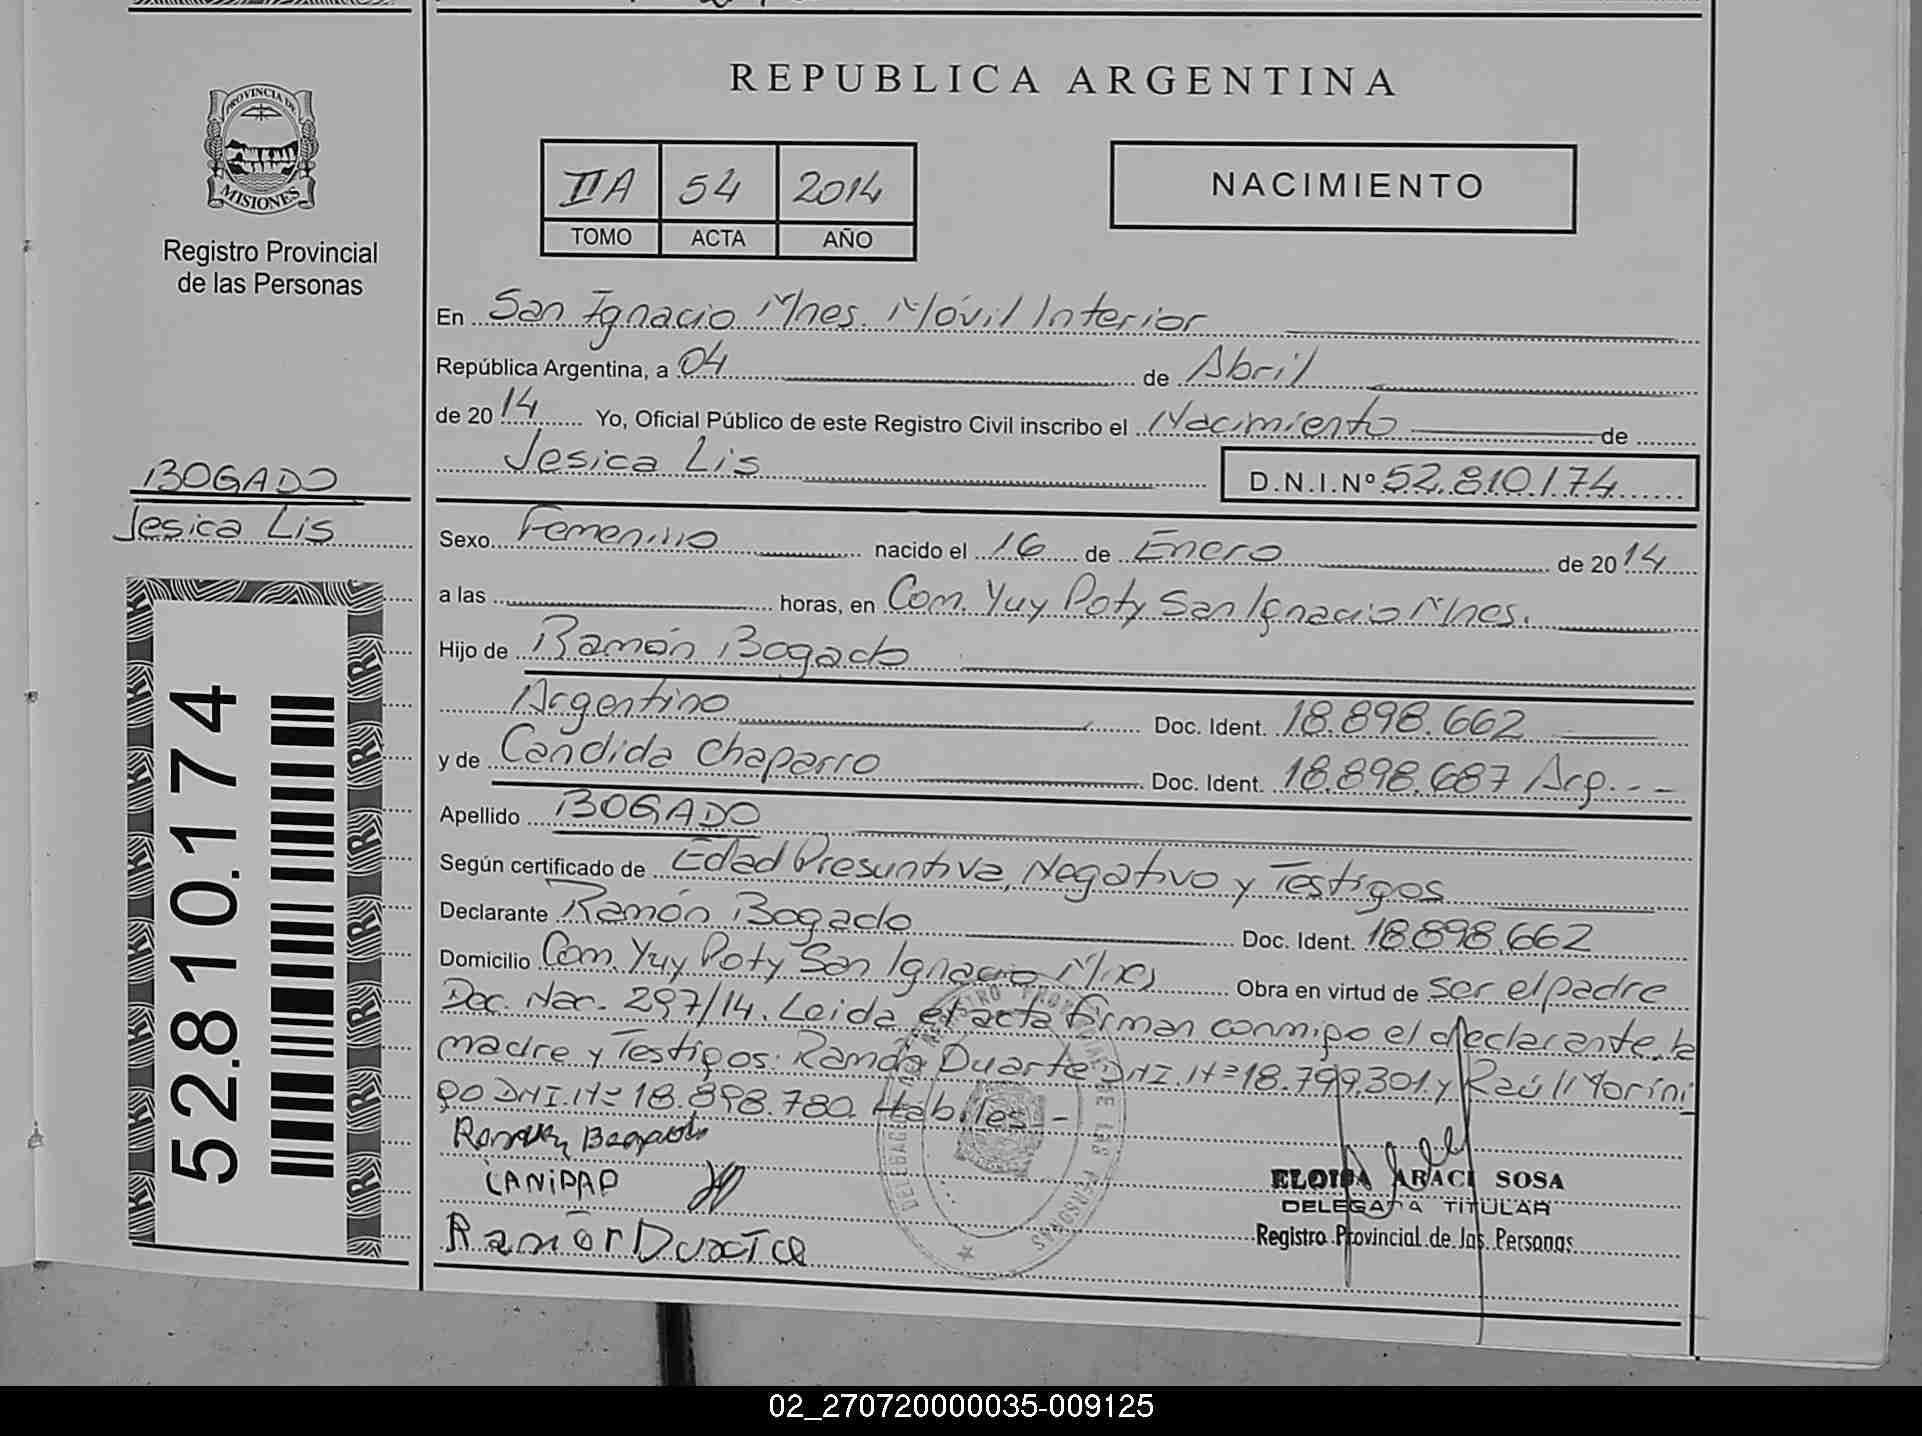 REPUBLICA ARGENTINA
PROVINCIA DE
MISIONES
Registro Provincial
de las Personas
IIA 54 2014
TOMO ACTA AÑO
NACIMIENTO
En San Ignacio Mnes. Móvil Interior
República Argentina, a 04 de Abril
de 2014 Yo, Oficial Público de este Registro Civil inscribo el Nacimiento de
Jesica Lis D.N.I.Nº 52.810.174
BOGADO
Jesica Lis
Sexo Femenino nacido el 16 de Enero de 2014
a las horas, en Com. Yuy Poty San Ignacio Mnes.
Hijo de Ramón Bogado
Argentino Doc. Ident. 18.898.662
y de Candida Chaparro Doc. Ident. 18.898.687 Arg.
Apellido BOGADO
Según certificado de Edad Presuntiva, Negativo y Testigos
Declarante Ramón Bogado Doc. Ident. 18.898.662
Domicilio Com. Yuy Poty San Ignacio Mnes Obra en virtud de ser el padre
Doc. Nac. 297/14. Leida el acta firman conmigo el declarante, la
madre y Testigos: Ramón Duarte DNI. Nº 18.799.301 y Raúl Morini
go DNI. Nº 18.898.780. Habiles. -
52.810.174
Ramón Bogado
CANiPAP
Ramor Duarte
ELOISA ARACI SOSA
DELEGADA TITULAR
Registro Provincial de las Personas
02_270720000035-009125